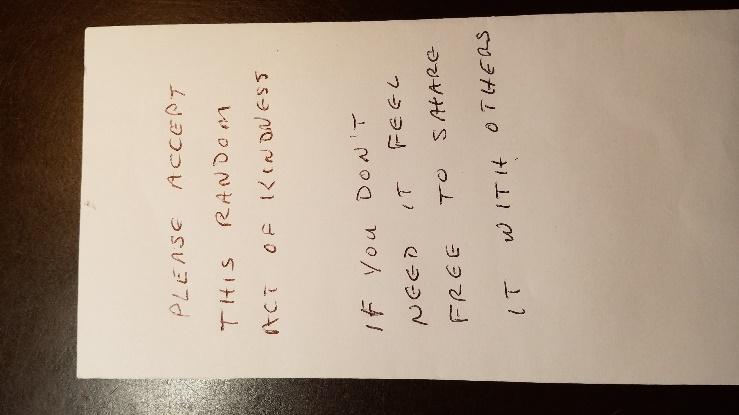 PLEASE ACCEPT
THIS RANDOM
ACT OF KINDNESS
IF YOU DON'T
NEED IT FEEL
FREE TO SHARE
IT WITH OTHERS